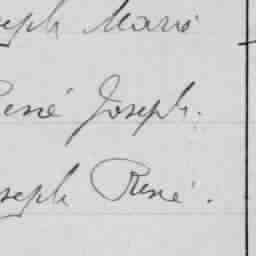 seph Mario
René Joseph.
oseph René.